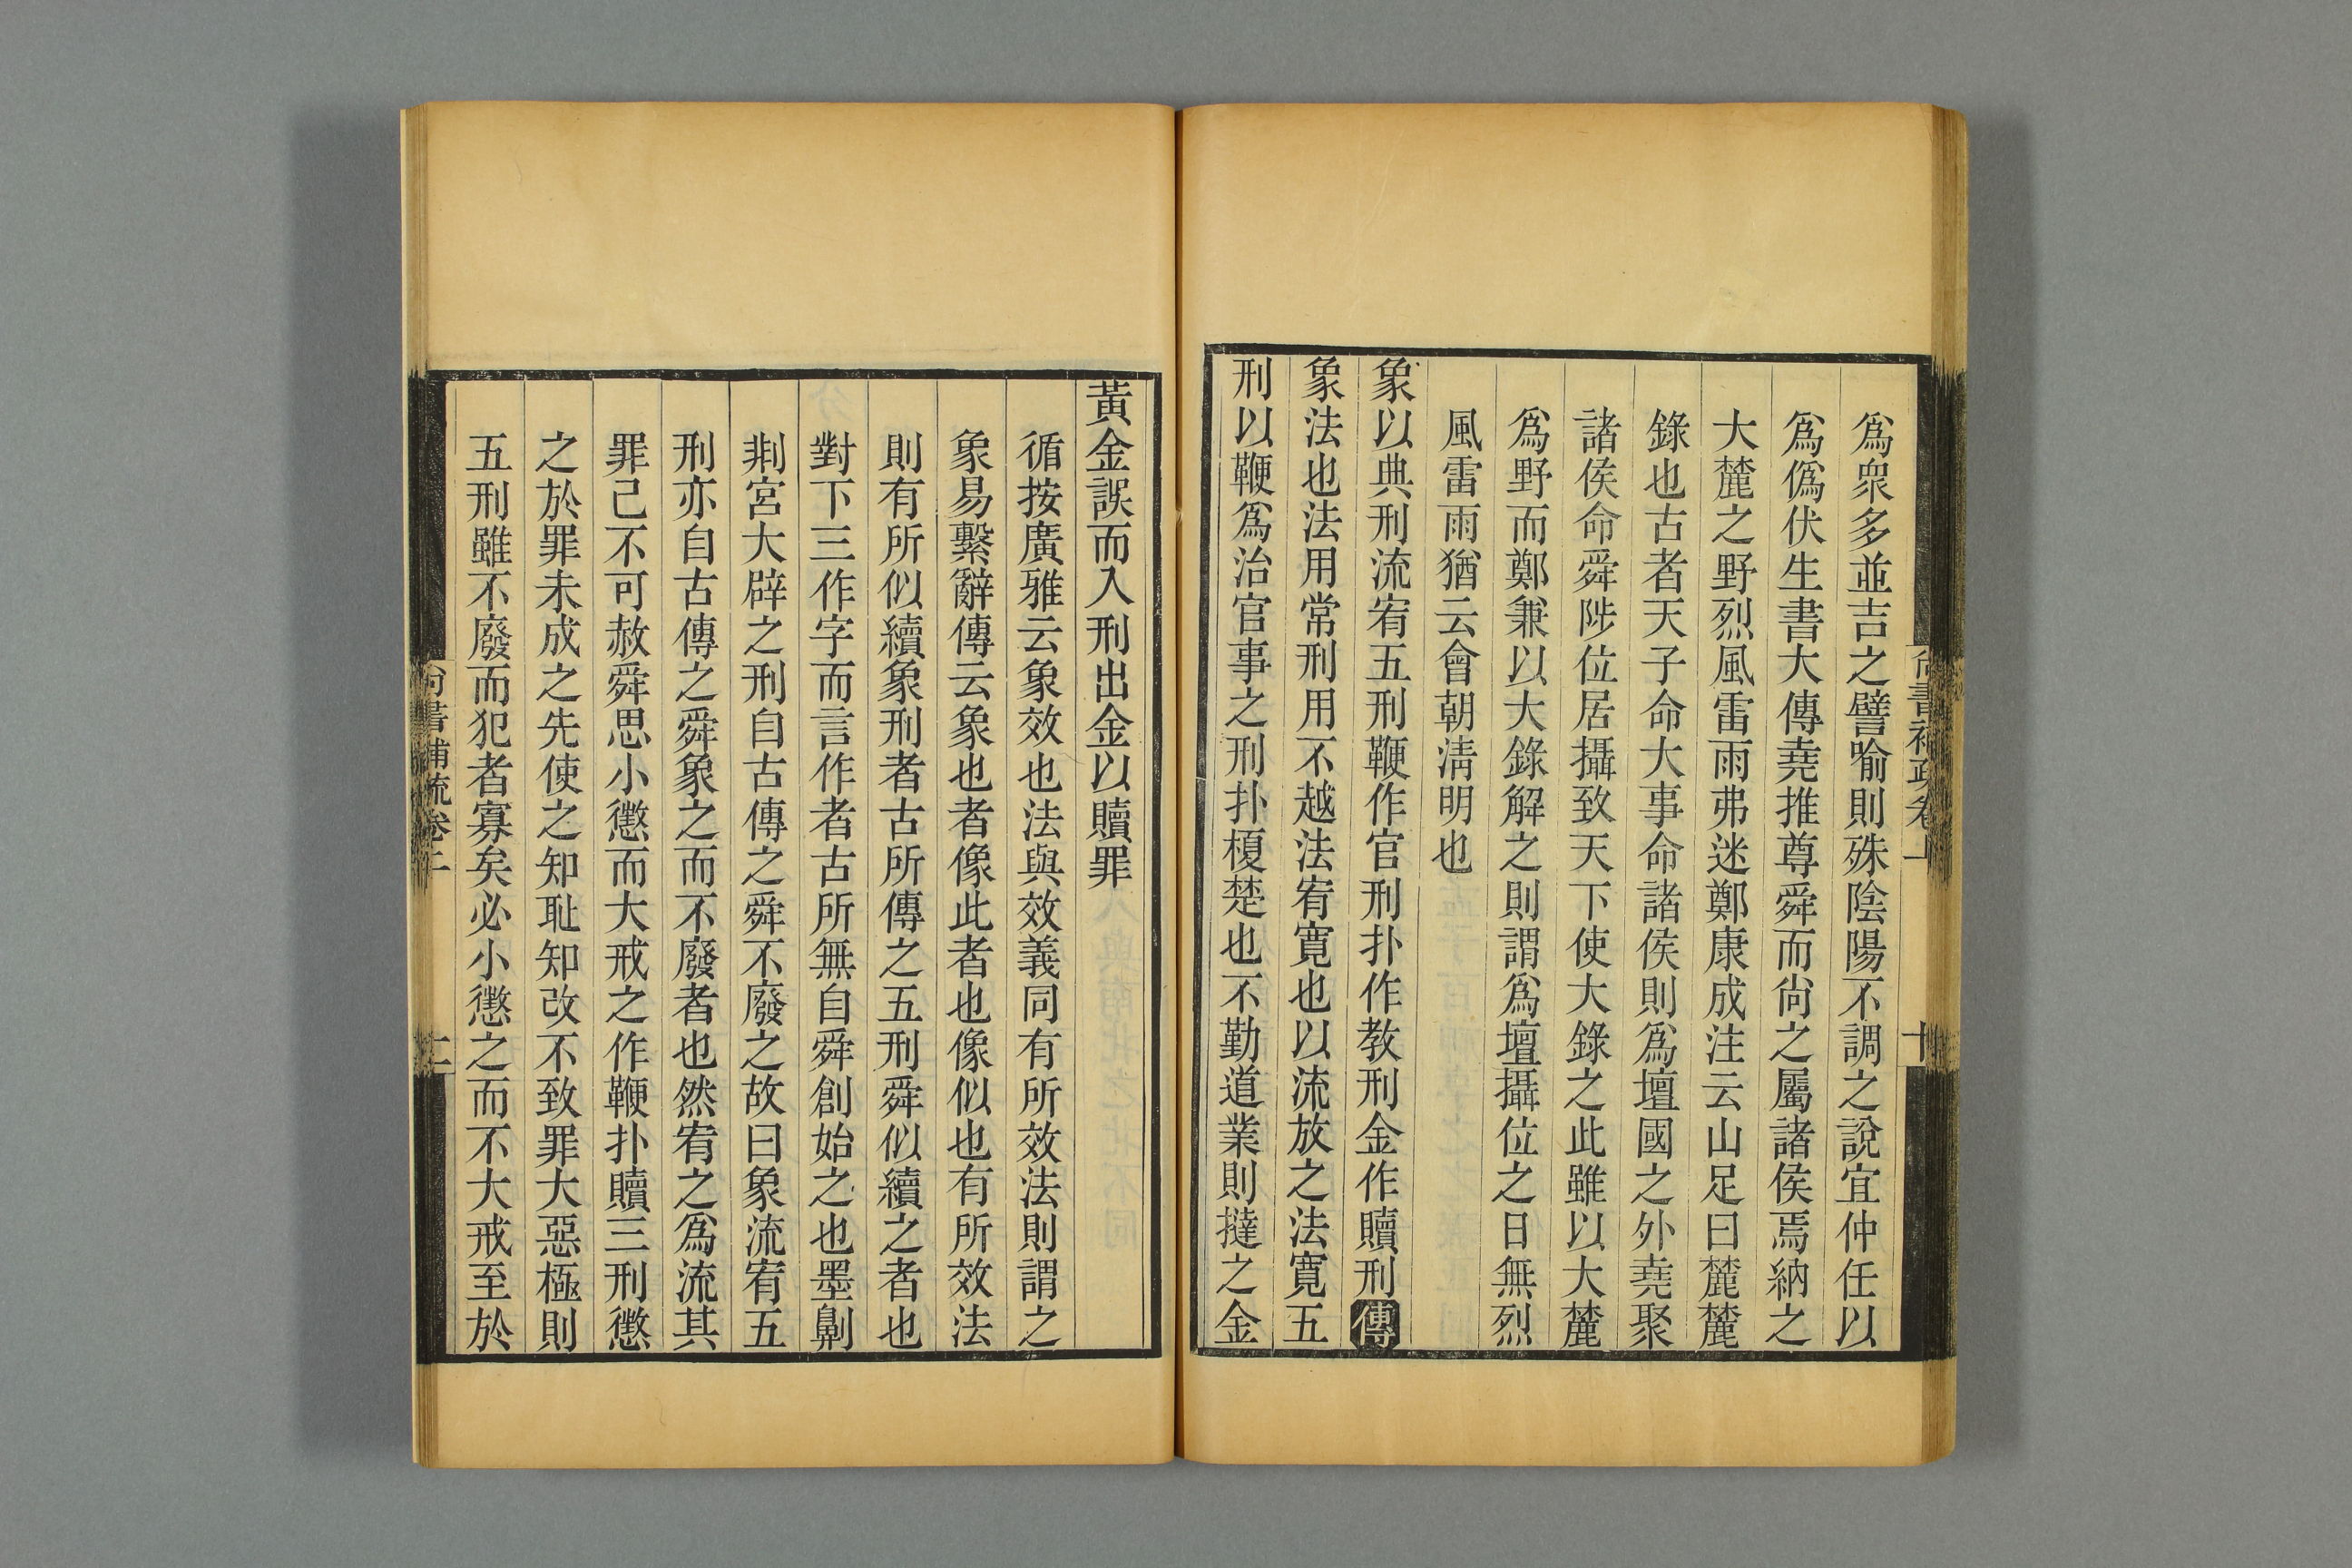 爲衆多並吉之譬喻則殊陰陽不調之說宜仲任以
爲僞伏生書大傳堯推尊舜而尙之屬諸侯焉納之
大麓之野烈風雷雨弗迷鄭康成注云山足曰麓麓
錄也古者天子命大事命諸侯則爲壇國之外堯聚
諸侯命舜陟位居攝致天下使大錄之此雖以大麓
爲野而鄭兼以大錄解之則謂爲壇攝位之日無烈
風雷雨猶云會朝淸明也
象以典刑流宥五刑鞭作官刑扑作教刑金作贖刑傳
象法也法用常刑用不越法宥寬也以流放之法寬五
刑以鞭爲治官事之刑扑榎楚也不勤道業則撻之金
黃金誤而入刑出金以贖罪
循按廣雅云象效也法與效義同有所效法則謂之
象易繫辭傳云象也者像此者也像似也有所效法
則有所似續象刑者古所傳之五刑舜似續之者也
對下三作字而言作者古所無自舜創始之也墨劓
剕宮大辟之刑自古傳之舜不廢之故曰象流宥五
刑亦自古傳之舜象之而不廢者也然宥之爲流其
罪己不可赦舜思小懲而大戒之作鞭扑贖三刑懲
之於罪未成之先使之知耻知改不致罪大惡極則
五刑雖不廢而犯者寡矣必小懲之而不大戒至於
尙書補疏卷上
十
尙書補疏卷上
十一